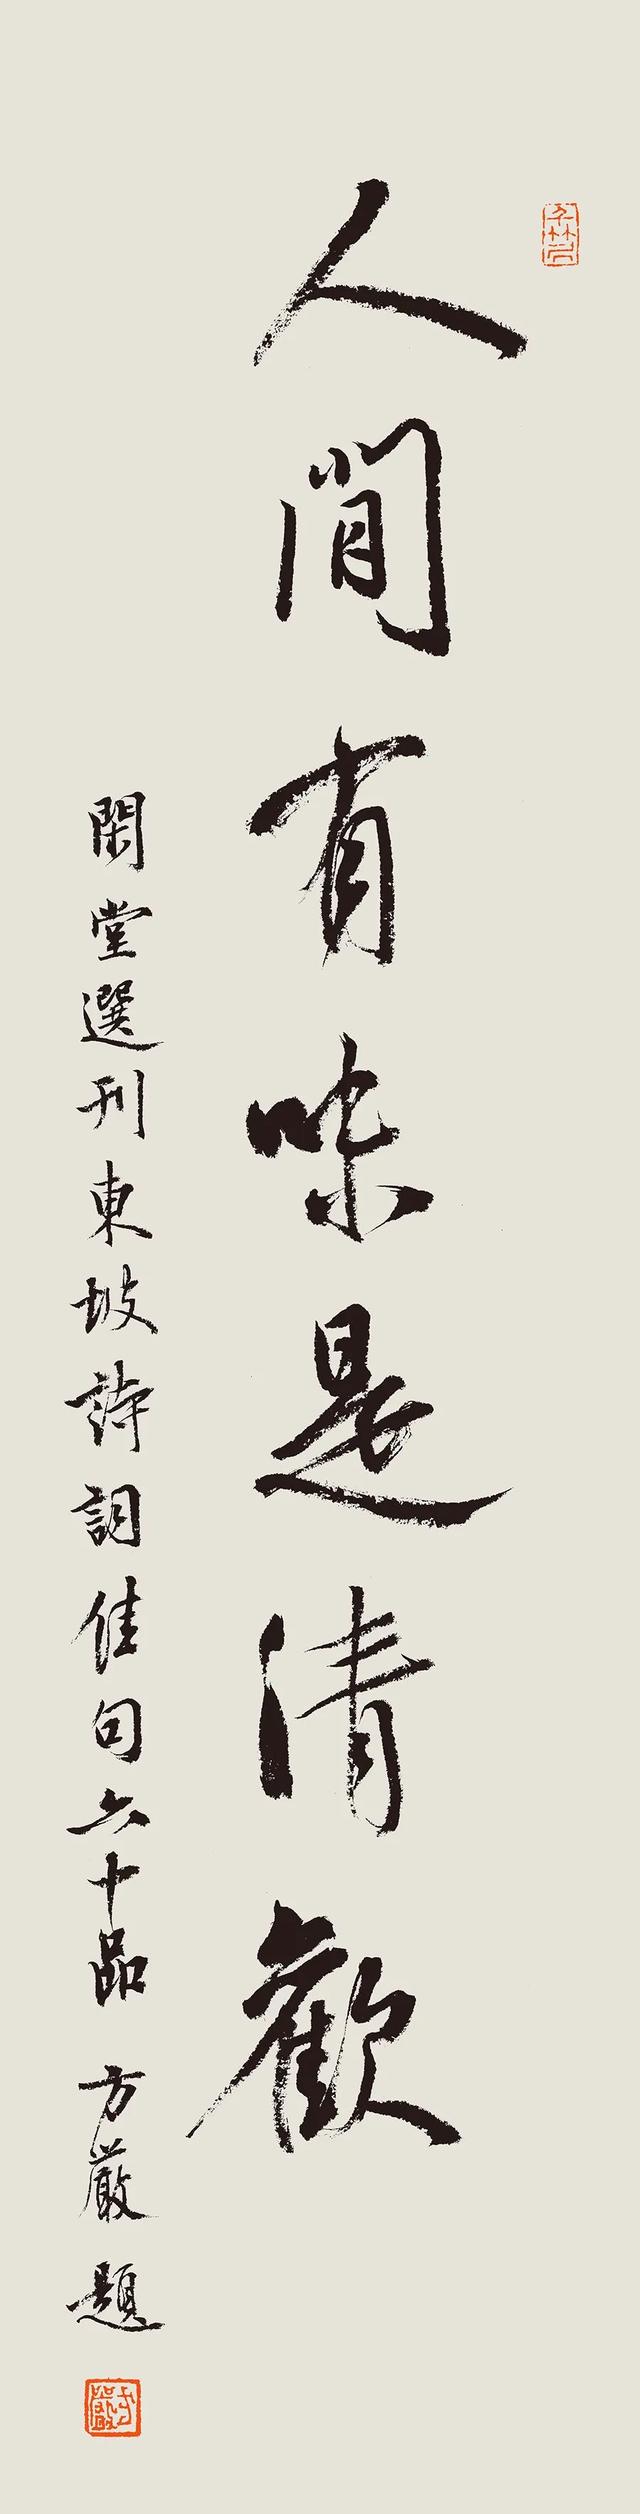 人間有味是清歡
閑堂選刊東坡詩詞佳句六十品 方嚴題